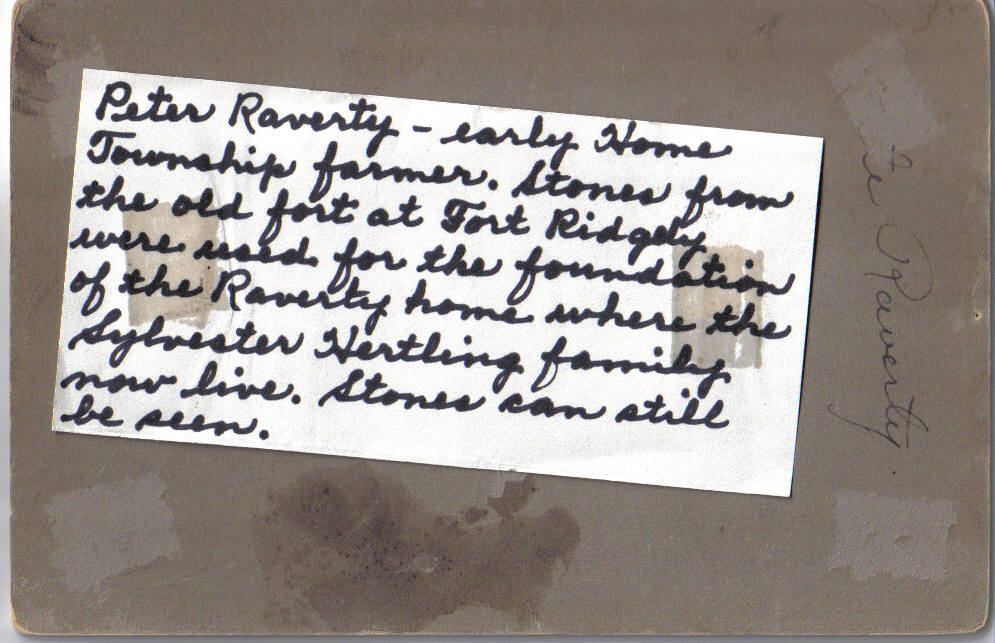 Peter Raverty - early Home
Township farmer. Stones from
the old fort at Fort Ridgely
were used for the foundation
of the Raverty home where the
Sylvester Hertling family
now live. Stones can still
be seen.
Raverty.